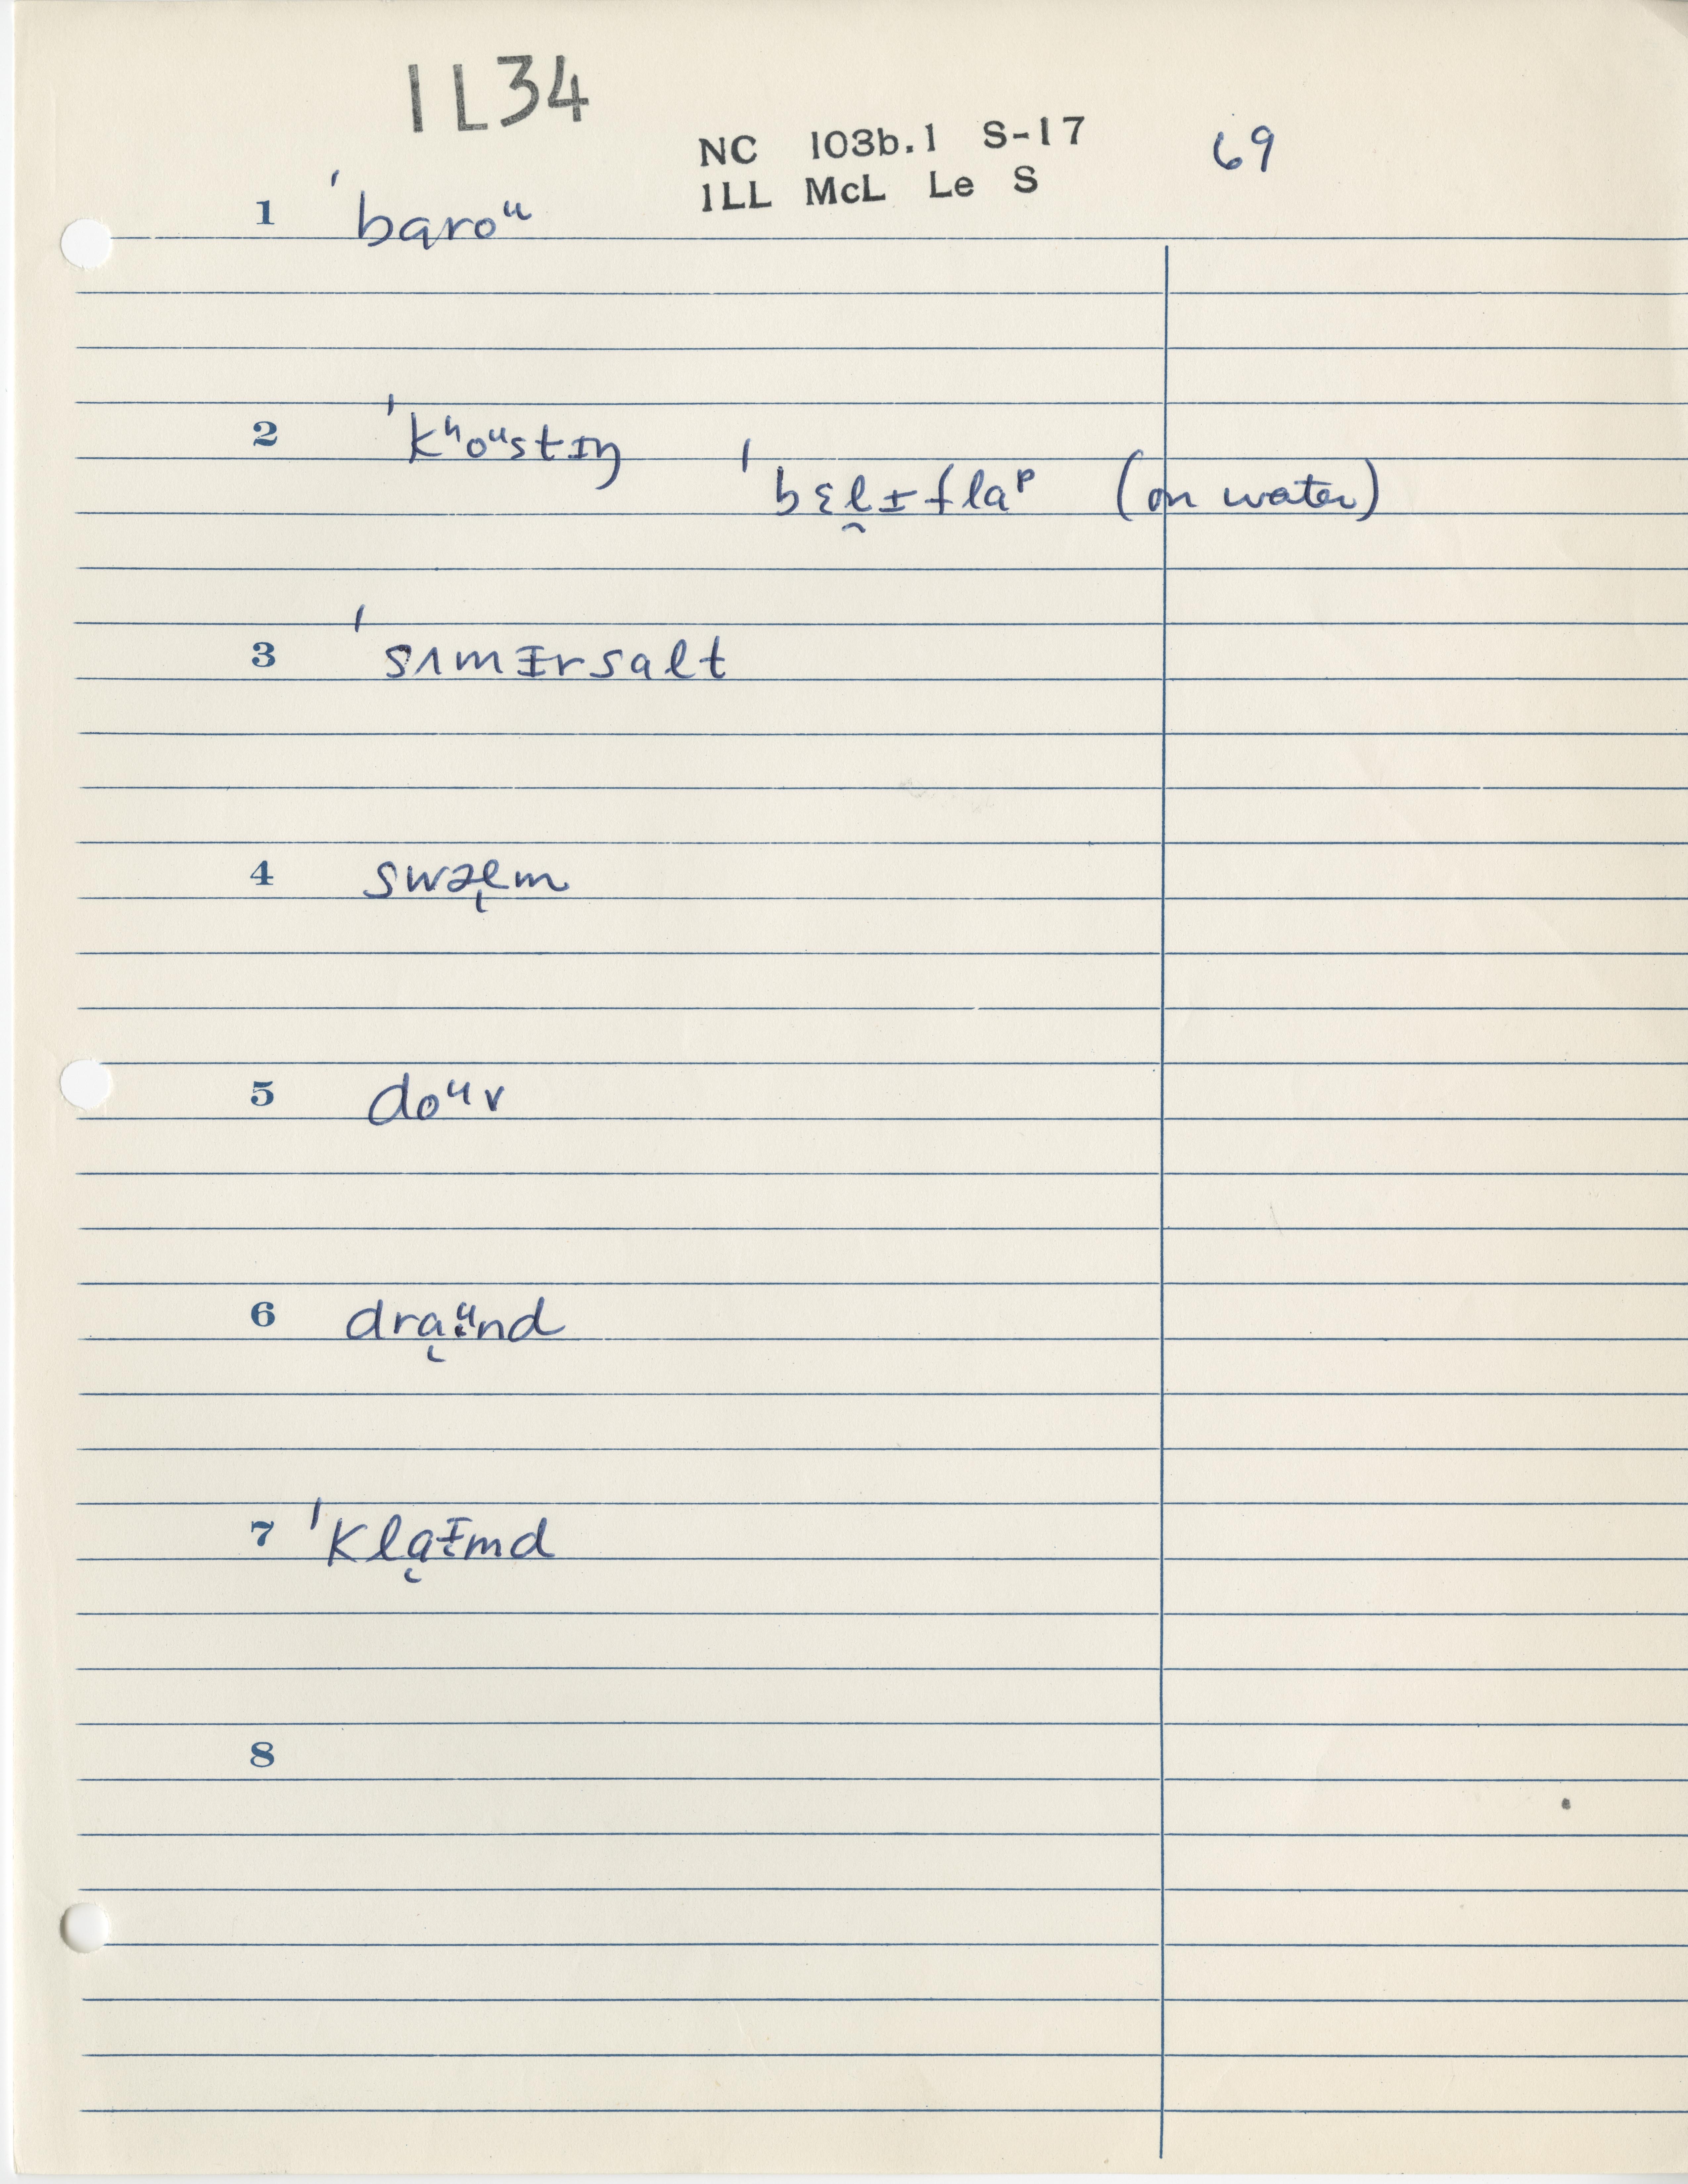 IL34
NC 103b.1 S-17 69
ILL McL Le S
1 ˈbaroᵘ
2 ˈkʰoᵘstɪŋ ˈbɛl̯ɪflaᵖ (on water)
3 ˈsʌmɪrsalt
4 swæ̨m
5 doᵘv
6 dra̜ᵘnd
7 ˈkla̜ɪmd
8